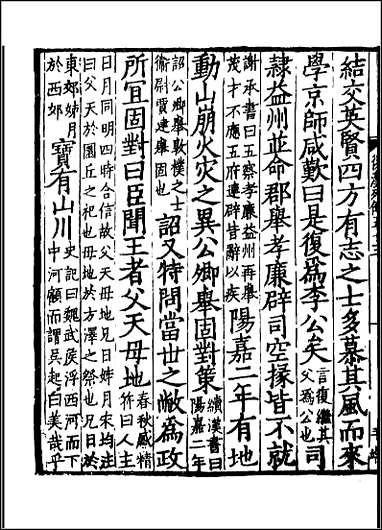 結交英賢四方有志之士多慕其風而來
學京師咸歎曰是復爲李公矣言復繼其父爲公也司
隸益州並命郡舉孝廉辟司空掾皆不就
謝承書曰五察孝廉益州再舉茂才不應五府連辟皆辭以疾陽嘉二年有地
動山崩火灾之異公卿舉固對策續漢書曰陽嘉二年
詔公卿舉敦樸之士衞尉賈建舉固也詔又特問當世之敝爲政
所宜固對曰臣聞王者父天母地春秋感精符曰人主
日月同明四時合信故父天母地兄日姊月宋均注曰父天於圜丘之祀也母地於方澤之祭也兄日於
東郊姊月於西郊寶有山川史記曰魏武侯浮西河而下中河顧而謂吳起曰美哉乎